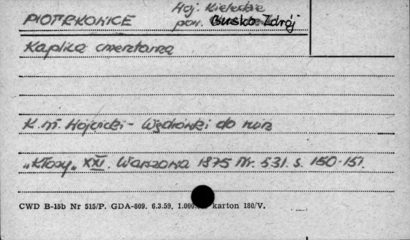 PIOTRKOWICE
Woj. Kieleckie
pow. Busko Zdrój
Kaplica cmentarna
K. Wł. Wójcicki - Wędrówki do ruin
"Kłosy" XXI. Warszawa 1875 Nr. 531. s. 150-151.
CWD B-15b Nr 515/P. GDA-809. 6.3.59. 1.000. karton 180/V.